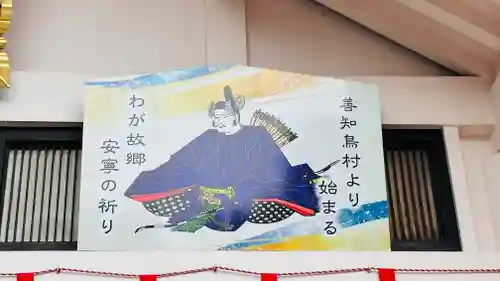 善知鳥村より
始まる
わが故郷
安寧の祈り